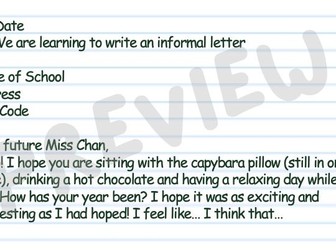 Date
We are learning to write an informal letter
of School
Code
future Miss Chan,
! I hope you are sitting with the capybara pillow (still in
), drinking a hot chocolate and having a relaxing day while
How has your year been? I hope it was as exciting and
as I had hoped! I feel like... I think that...
PREVIEW